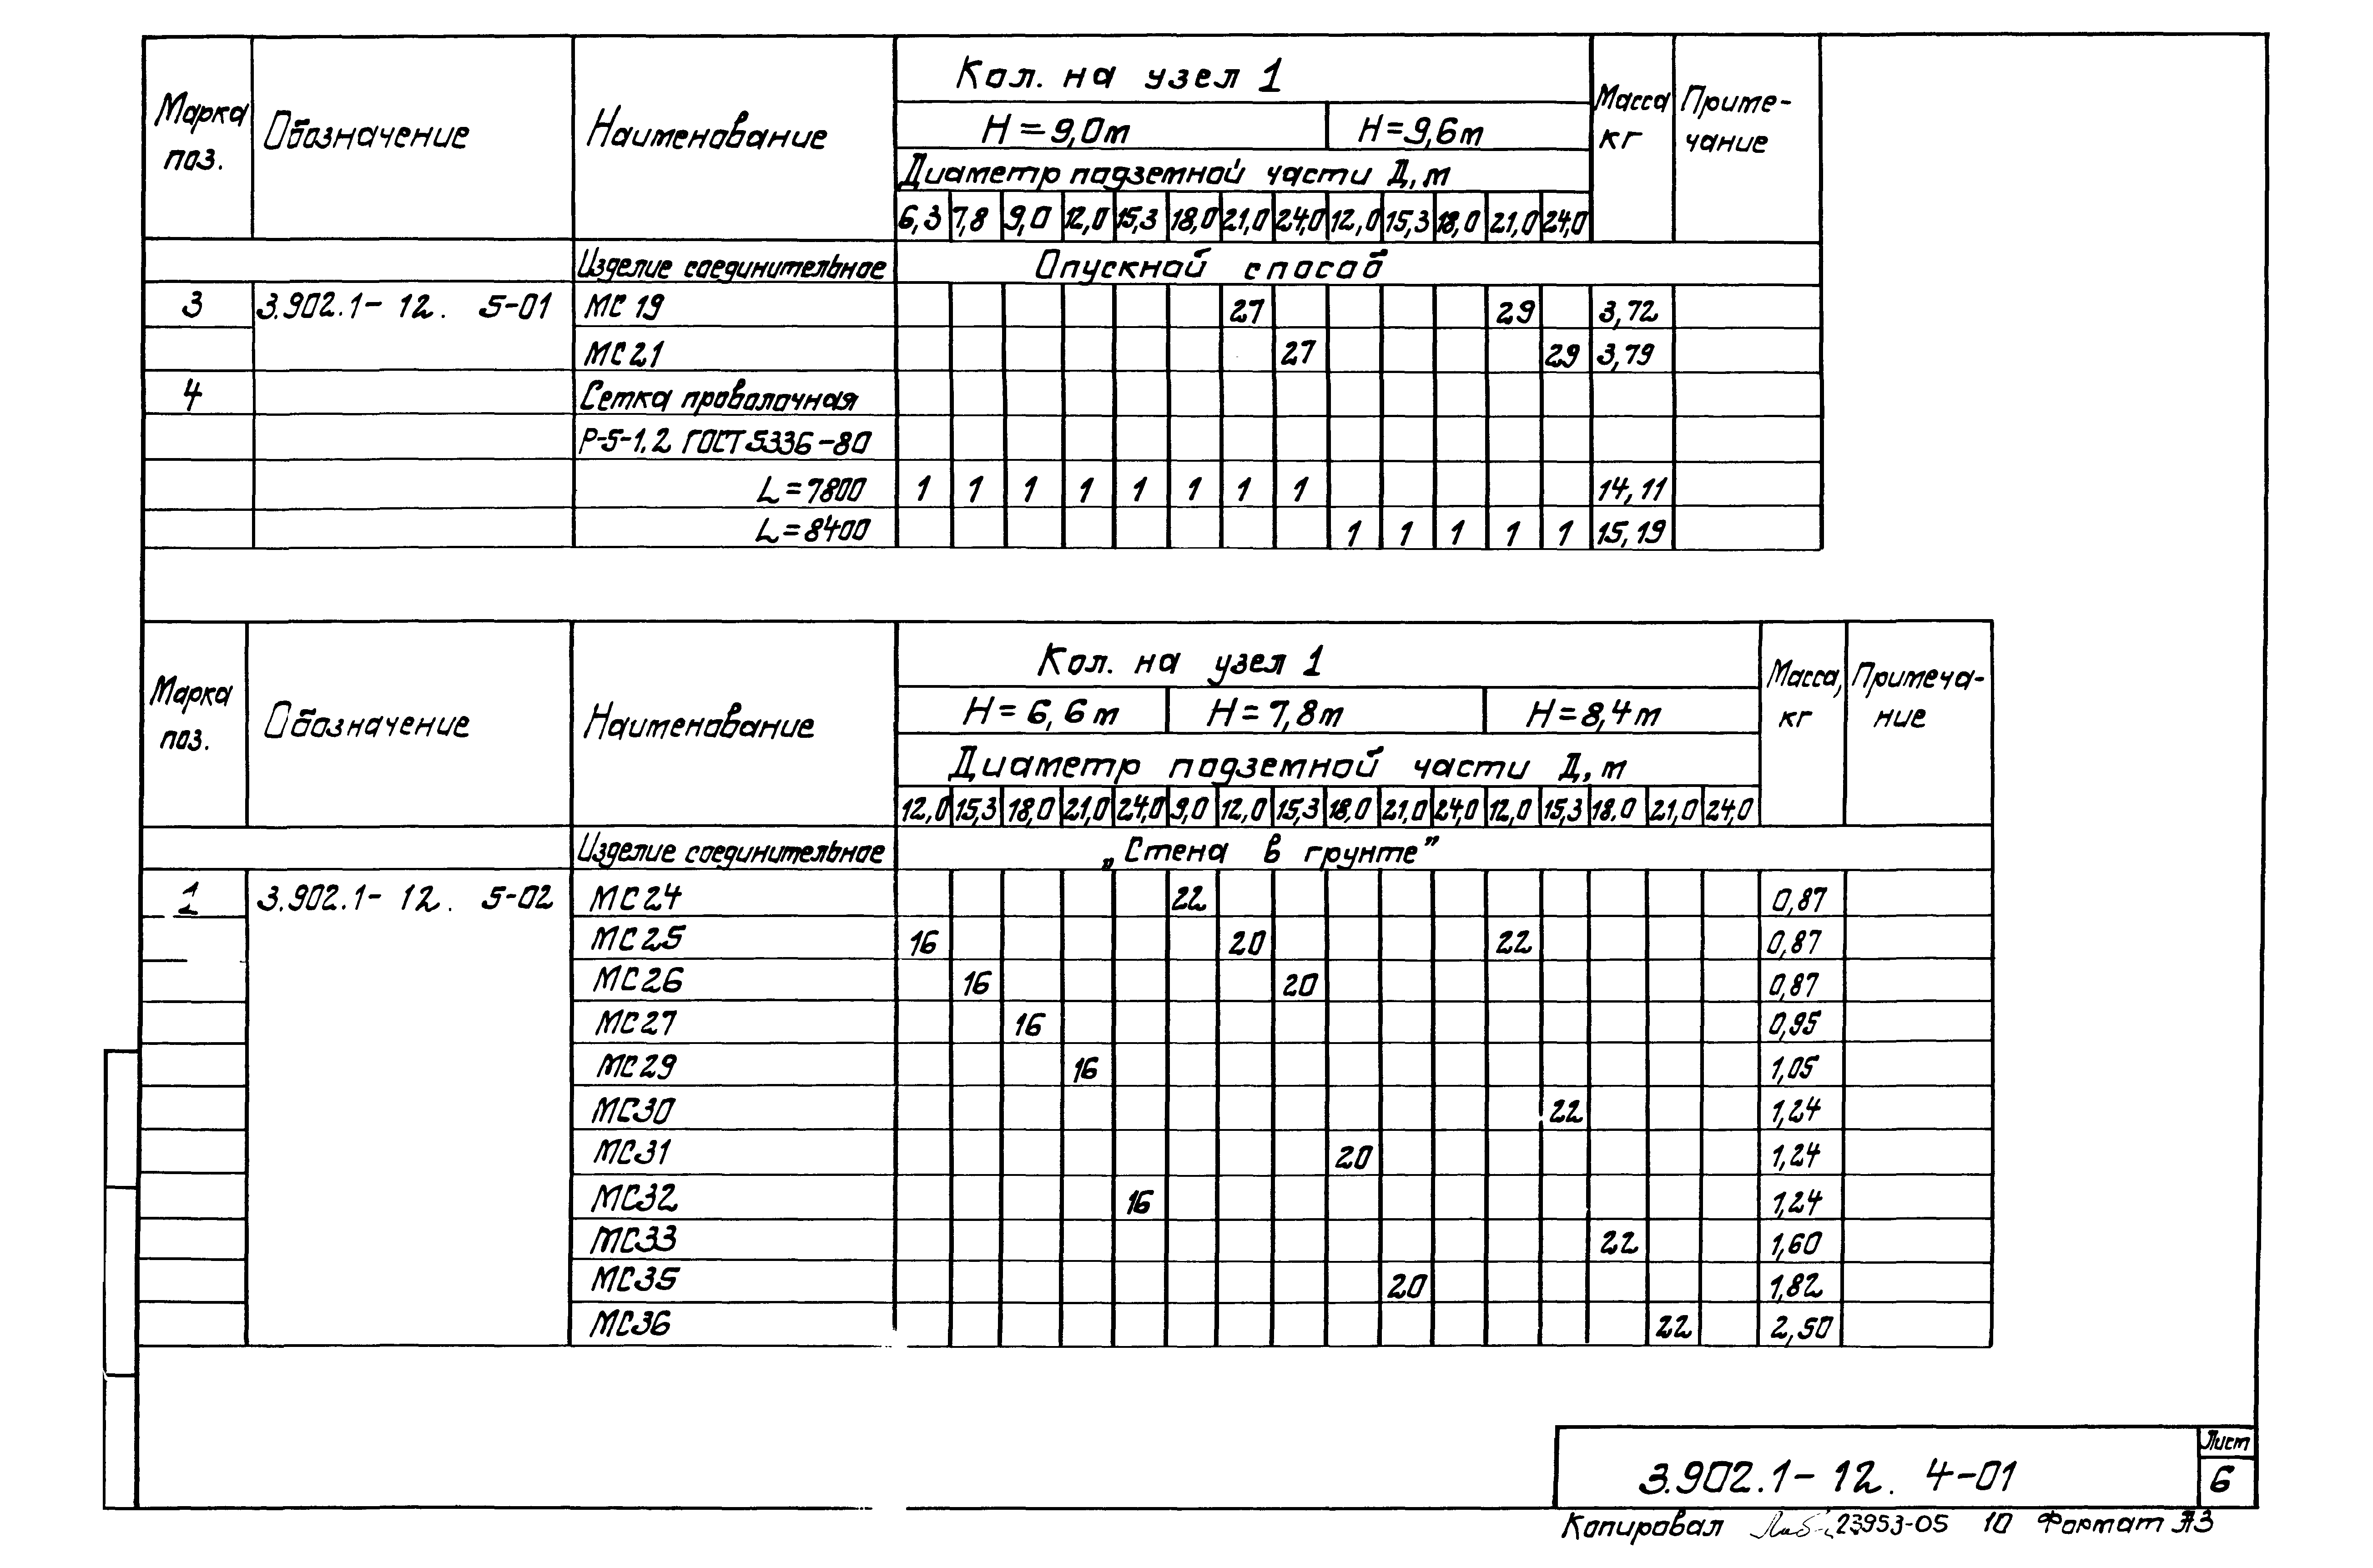 Марка поз. Обозначение Наименование Кол. на узел 1 Масса кг Примечание
H=9,0м H=9,6м
Диаметр подземной части Д, м
6,3 7,8 9,0 12,0 15,3 18,0 21,0 24,0 12,0 15,3 18,0 21,0 24,0
Изделие соединительное Опускной способ
3 3.902.1-12. 5-01 МС19 27 29 3,72
МС21 27 29 3,79
4 Сетка проволочная
Р-5-1,2 ГОСТ 5336-80
L=7800 1 1 1 1 1 1 1 1 14,11
L=8400 1 1 1 1 1 15,19
Марка поз. Обозначение Наименование Кол. на узел 1 Масса, кг Примечание
H=6,6м H=7,8м H=8,4м
Диаметр подземной части Д, м
12,0 15,3 18,0 21,0 24,0 9,0 12,0 15,3 18,0 21,0 24,0 12,0 15,3 18.0 21,0 24,0
Изделие соединительное „Стена в грунте”
1 3.902.1-12. 5-02 МС24 22 0,87
МС25 16 20 22 0,87
МС26 16 20 0,87
МС27 16 0,95
МС29 16 1,05
МС30 22 1,24
МС31 20 1,24
МС32 16 1,24
МС33 22 1,60
МС35 20 1,82
МС36 22 2,50
3.902.1-12. 4-01 Лист 6
Копировал 23953-05 10 Формат А3